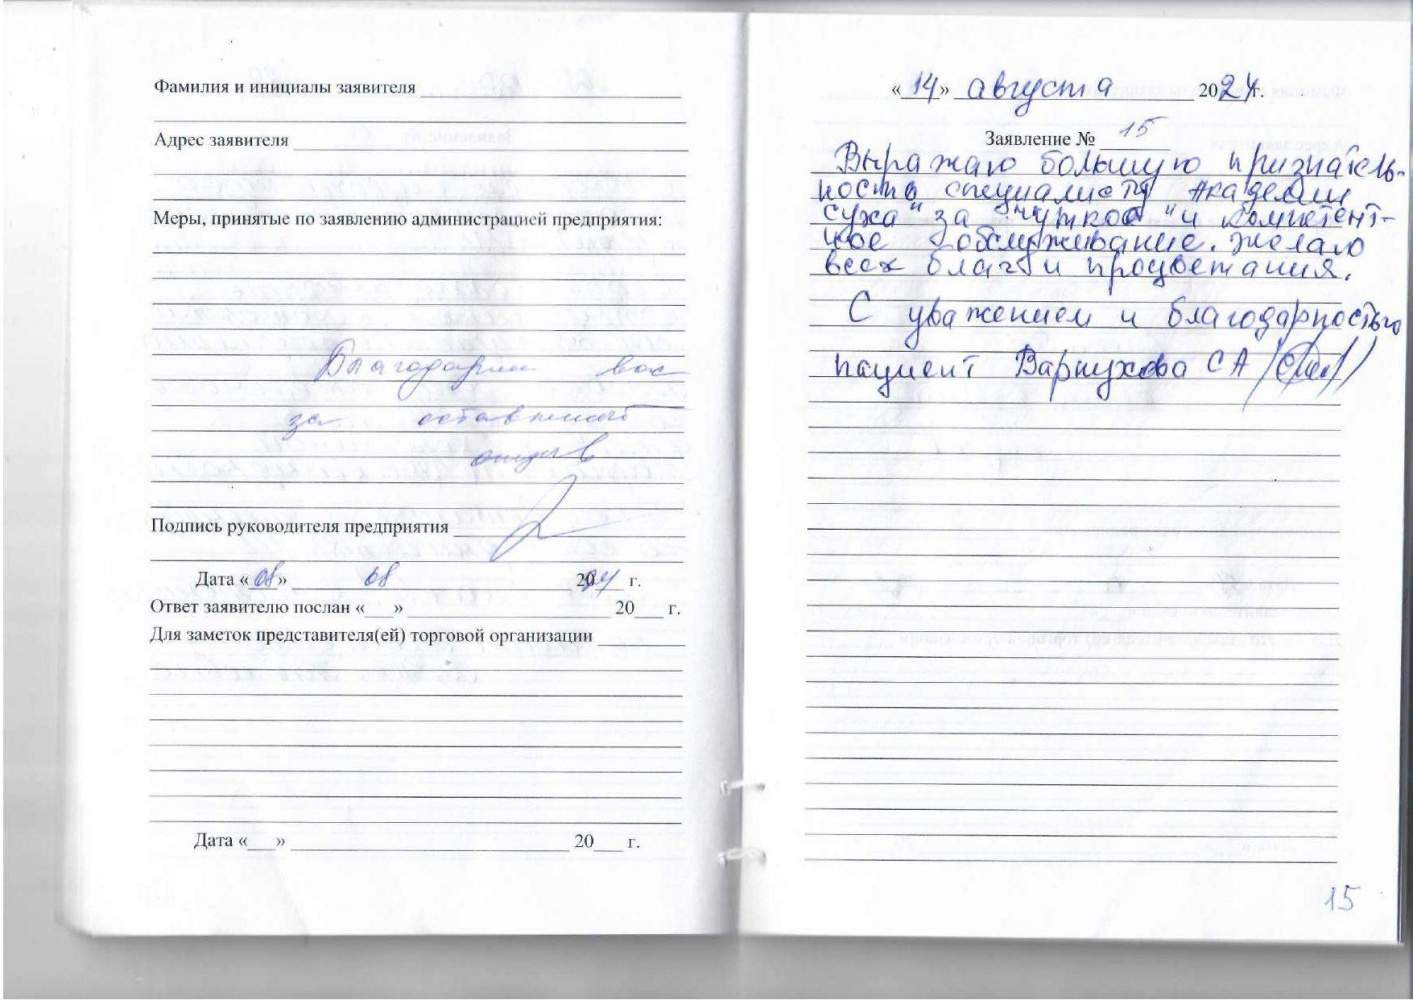 Фамилия и инициалы заявителя
Адрес заявителя
Меры, принятые по заявлению администрацией предприятия:
Благодарим вас
за оставленный
отзыв
Подпись руководителя предприятия
Дата «08» 08 2024 г.
Ответ заявителю послан «___» 20___ г.
Для заметок представителя(ей) торговой организации
Дата «___» 20___ г.
«14» августа 2024г.
Заявление № 15
Выражаю большую признатель-
ность специалисту Академии
слуха" за "чуткое" и компетент-
ное обслуживание. Желаю
всех благ и процветания.
С уважением и благодарностью
пациент Варнухова С А
15